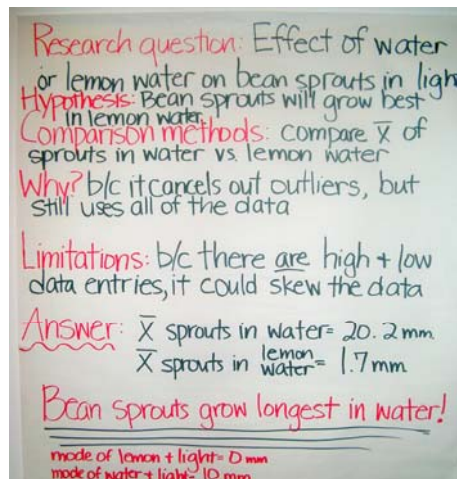 Research question: Effect of water
or lemon water on bean sprouts in light
Hypothesis: Bean sprouts will grow best
in lemon water.
Comparison methods: compare x̄ of
sprouts in water vs. lemon water
Why? b/c it cancels out outliers, but
still uses all of the data
Limitations: b/c there are high + low
data entries, it could skew the data
Answer: X̄ sprouts in water= 20.2mm
X̄ sprouts in lemon water= 1.7mm
Bean sprouts grow longest in water!
mode of lemon + light= 0 mm
mode of water + light= 10 mm